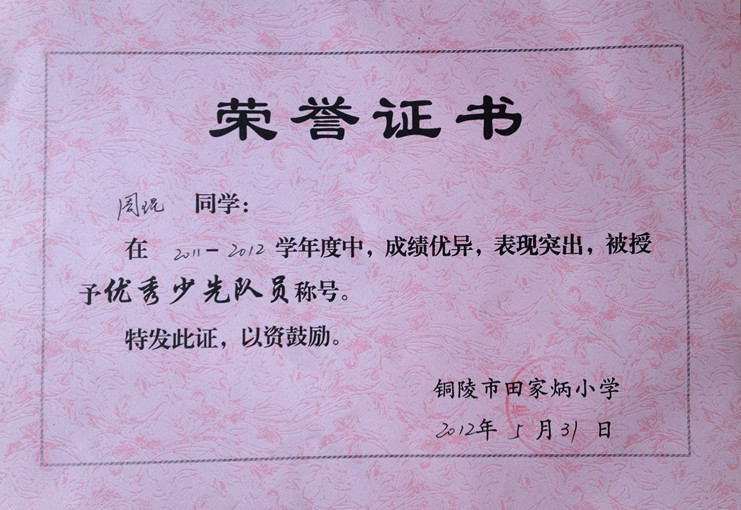 荣誉证书
周琨 同学：
在 2011-2012 学年度中，成绩优异，表现突出，被授
予优秀少先队员称号。
特发此证，以资鼓励。
铜陵市田家炳小学
2012年 5 月 31 日